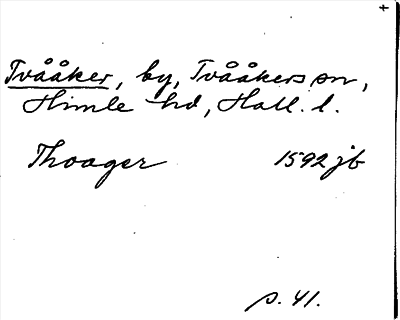 Tvååker, by, Tvååkers sn,
Himle hd, Hall. l.
Thoager 1592 jb
s. 41.